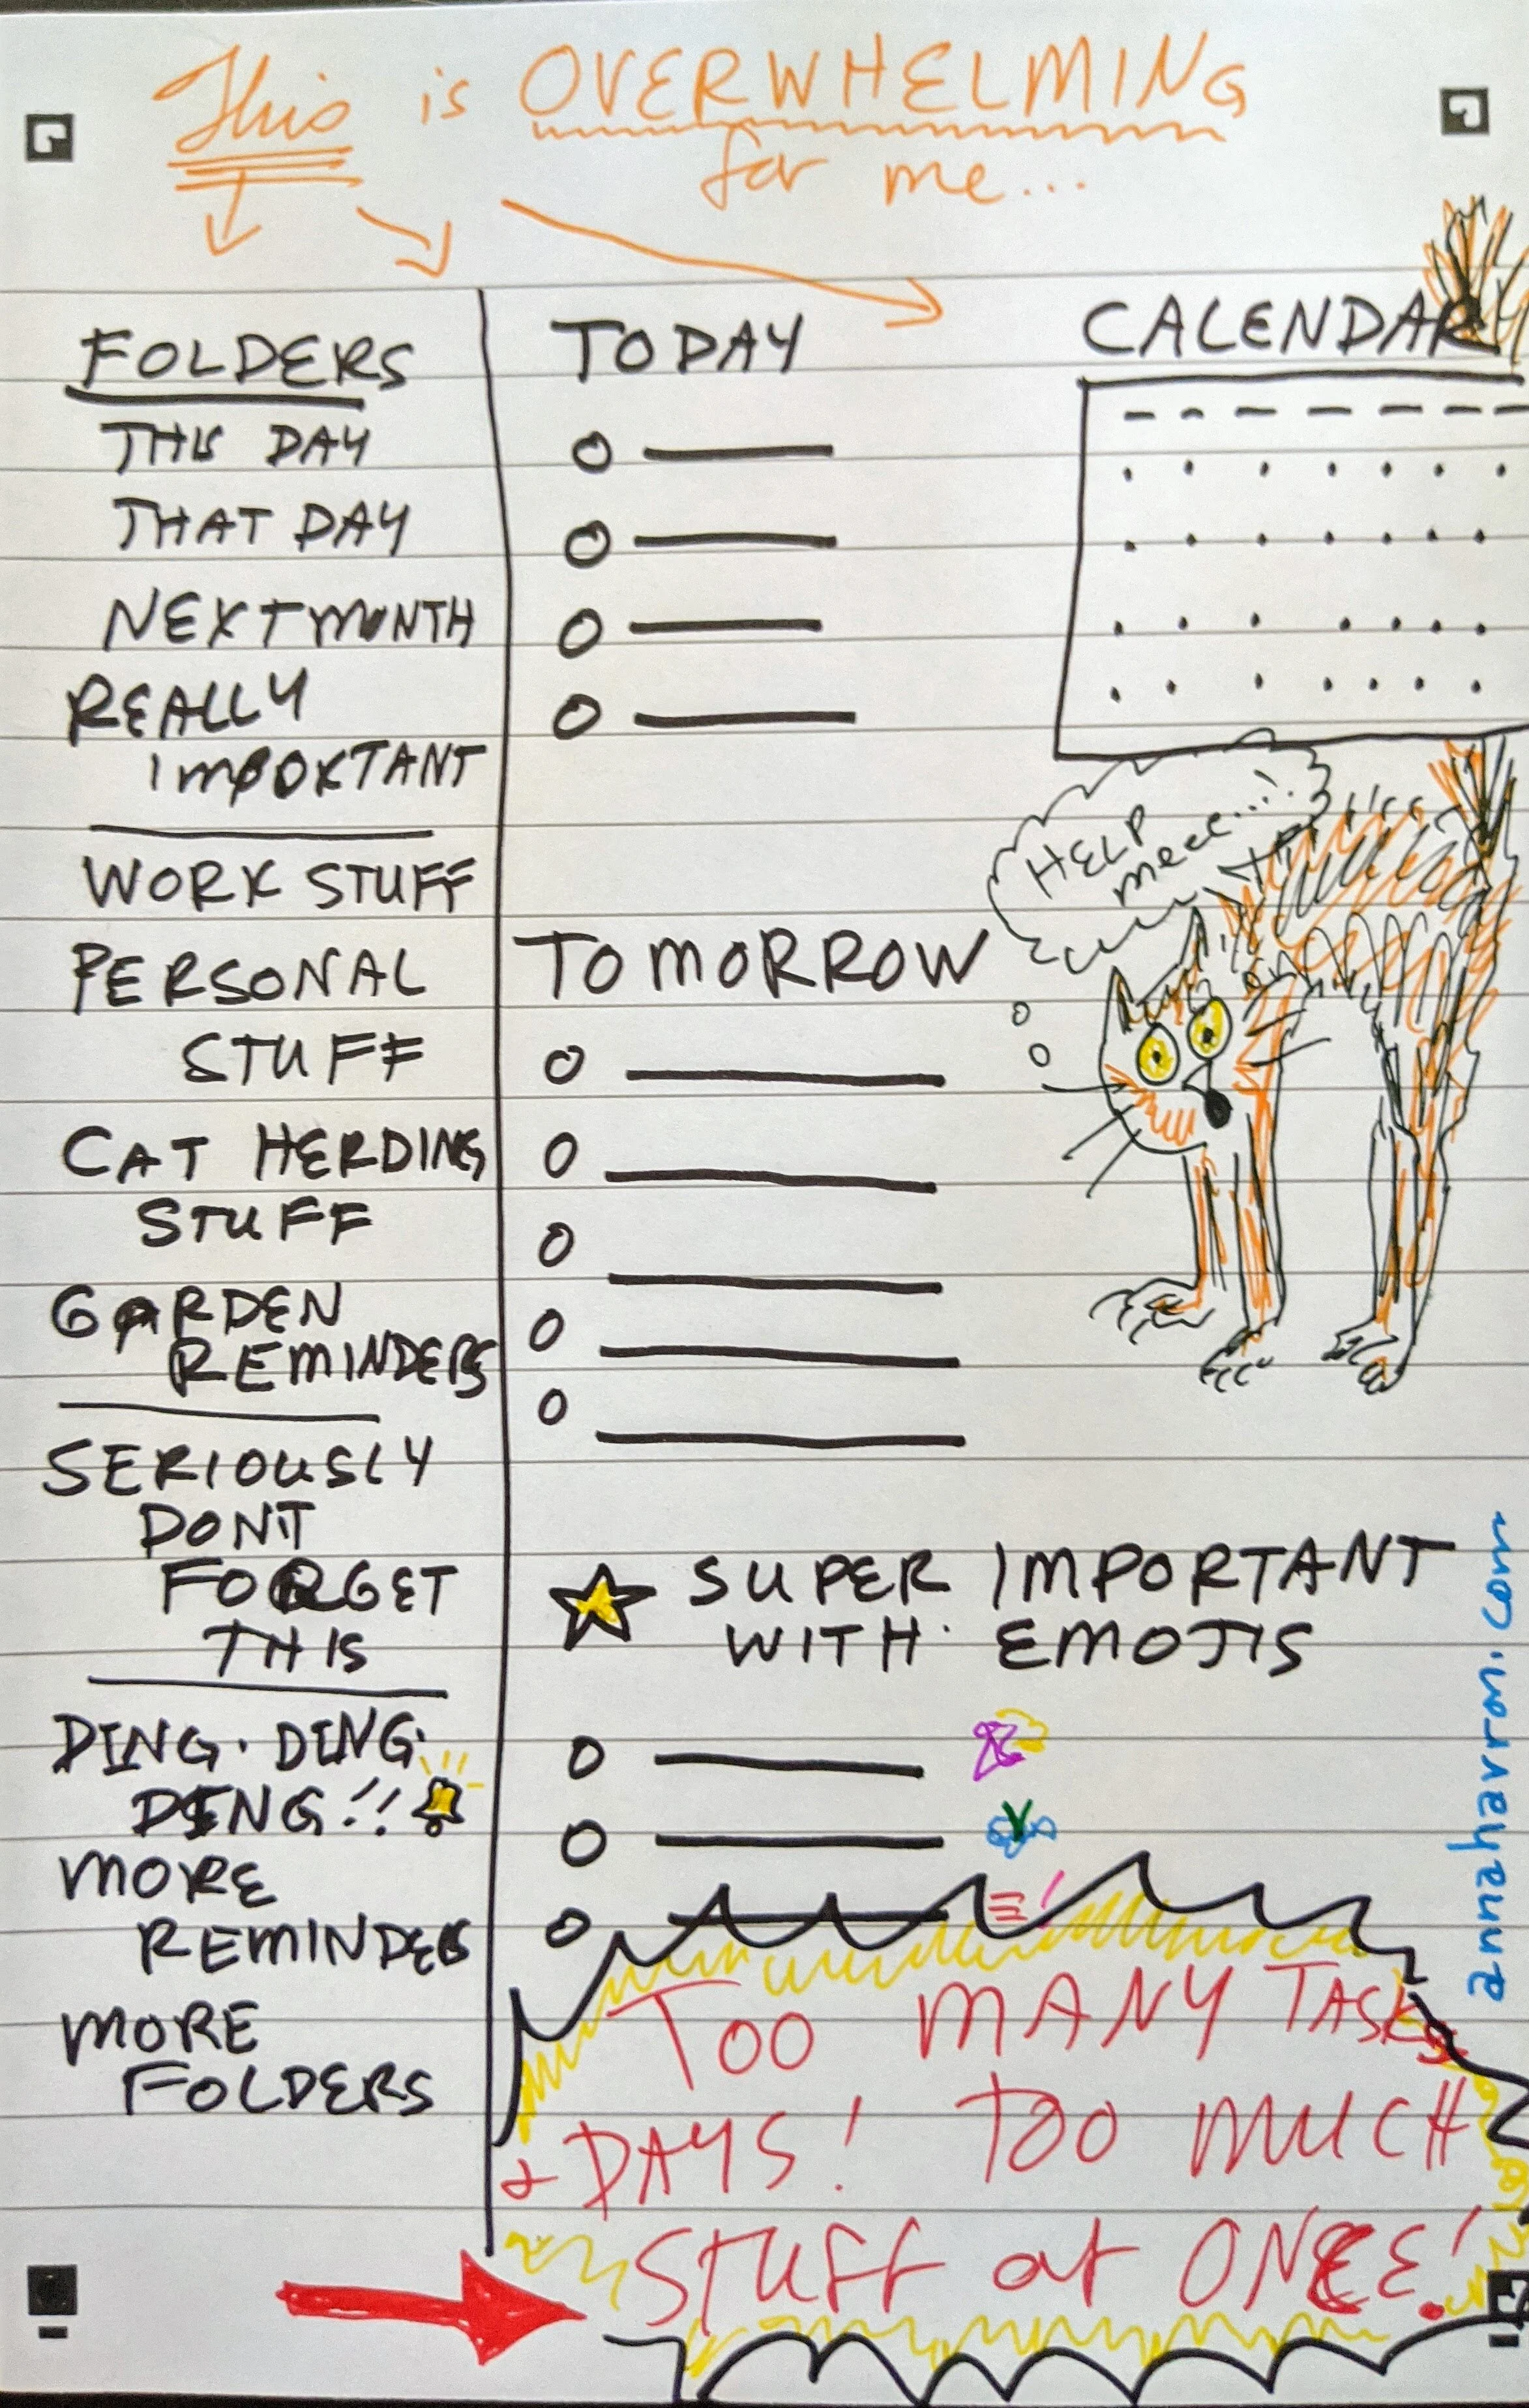 This is OVERWHELMING
for me...
FOLDERS
THIS DAY
THAT DAY
NEXT MONTH
REALLY
IMPORTANT
WORK STUFF
PERSONAL
STUFF
CAT HERDING
STUFF
GARDEN
REMINDERS
SERIOUSLY
DON'T
FORGET
THIS
DING. DING.
DING!!
MORE
REMINDERS
MORE
FOLDERS
TODAY
TOMORROW
SUPER IMPORTANT
WITH EMOJIS
CALENDAR
HELP
meee...!
TOO MANY TASKS
+ DAYS! TOO MUCH
STUFF at ONCE!
annahavron.com